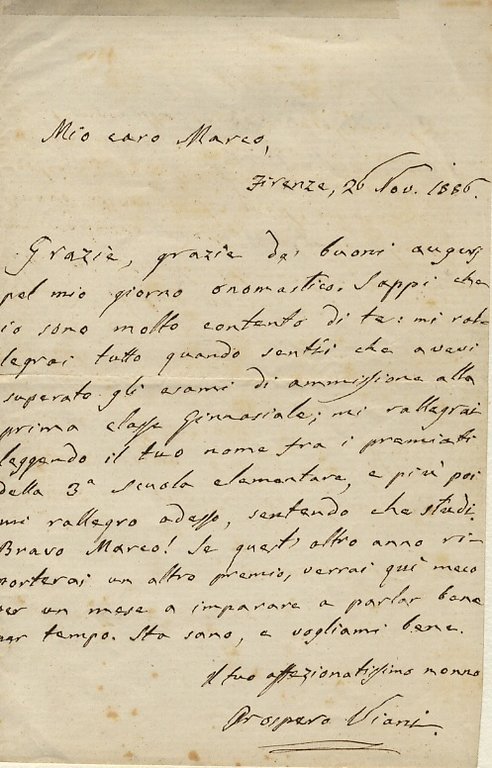 Mio caro Marco,
Firenze, 26 Nov. 1886.
Grazie, grazie de' buoni augurj
pel mio giorno onomastico. Sappi che
io sono molto contento di te: mi ral-
legrai tutto quando sentii che avevi
superato gli esami di ammissione alla
prima classe Ginnasiale; mi rallegrai
leggendo il tuo nome fra i premiati
della 3ª scuola elementare, e più poi
mi rallegro adesso, sentendo che studi.
Bravo Marco! Se quest'altro anno ri-
porterai un altro premio, verrai quì meco
per un mese a imparare a parlar bene
per tempo. Sta sano, e vogliami bene.
Il tuo affezionatissimo nonno
Prospero Viani.